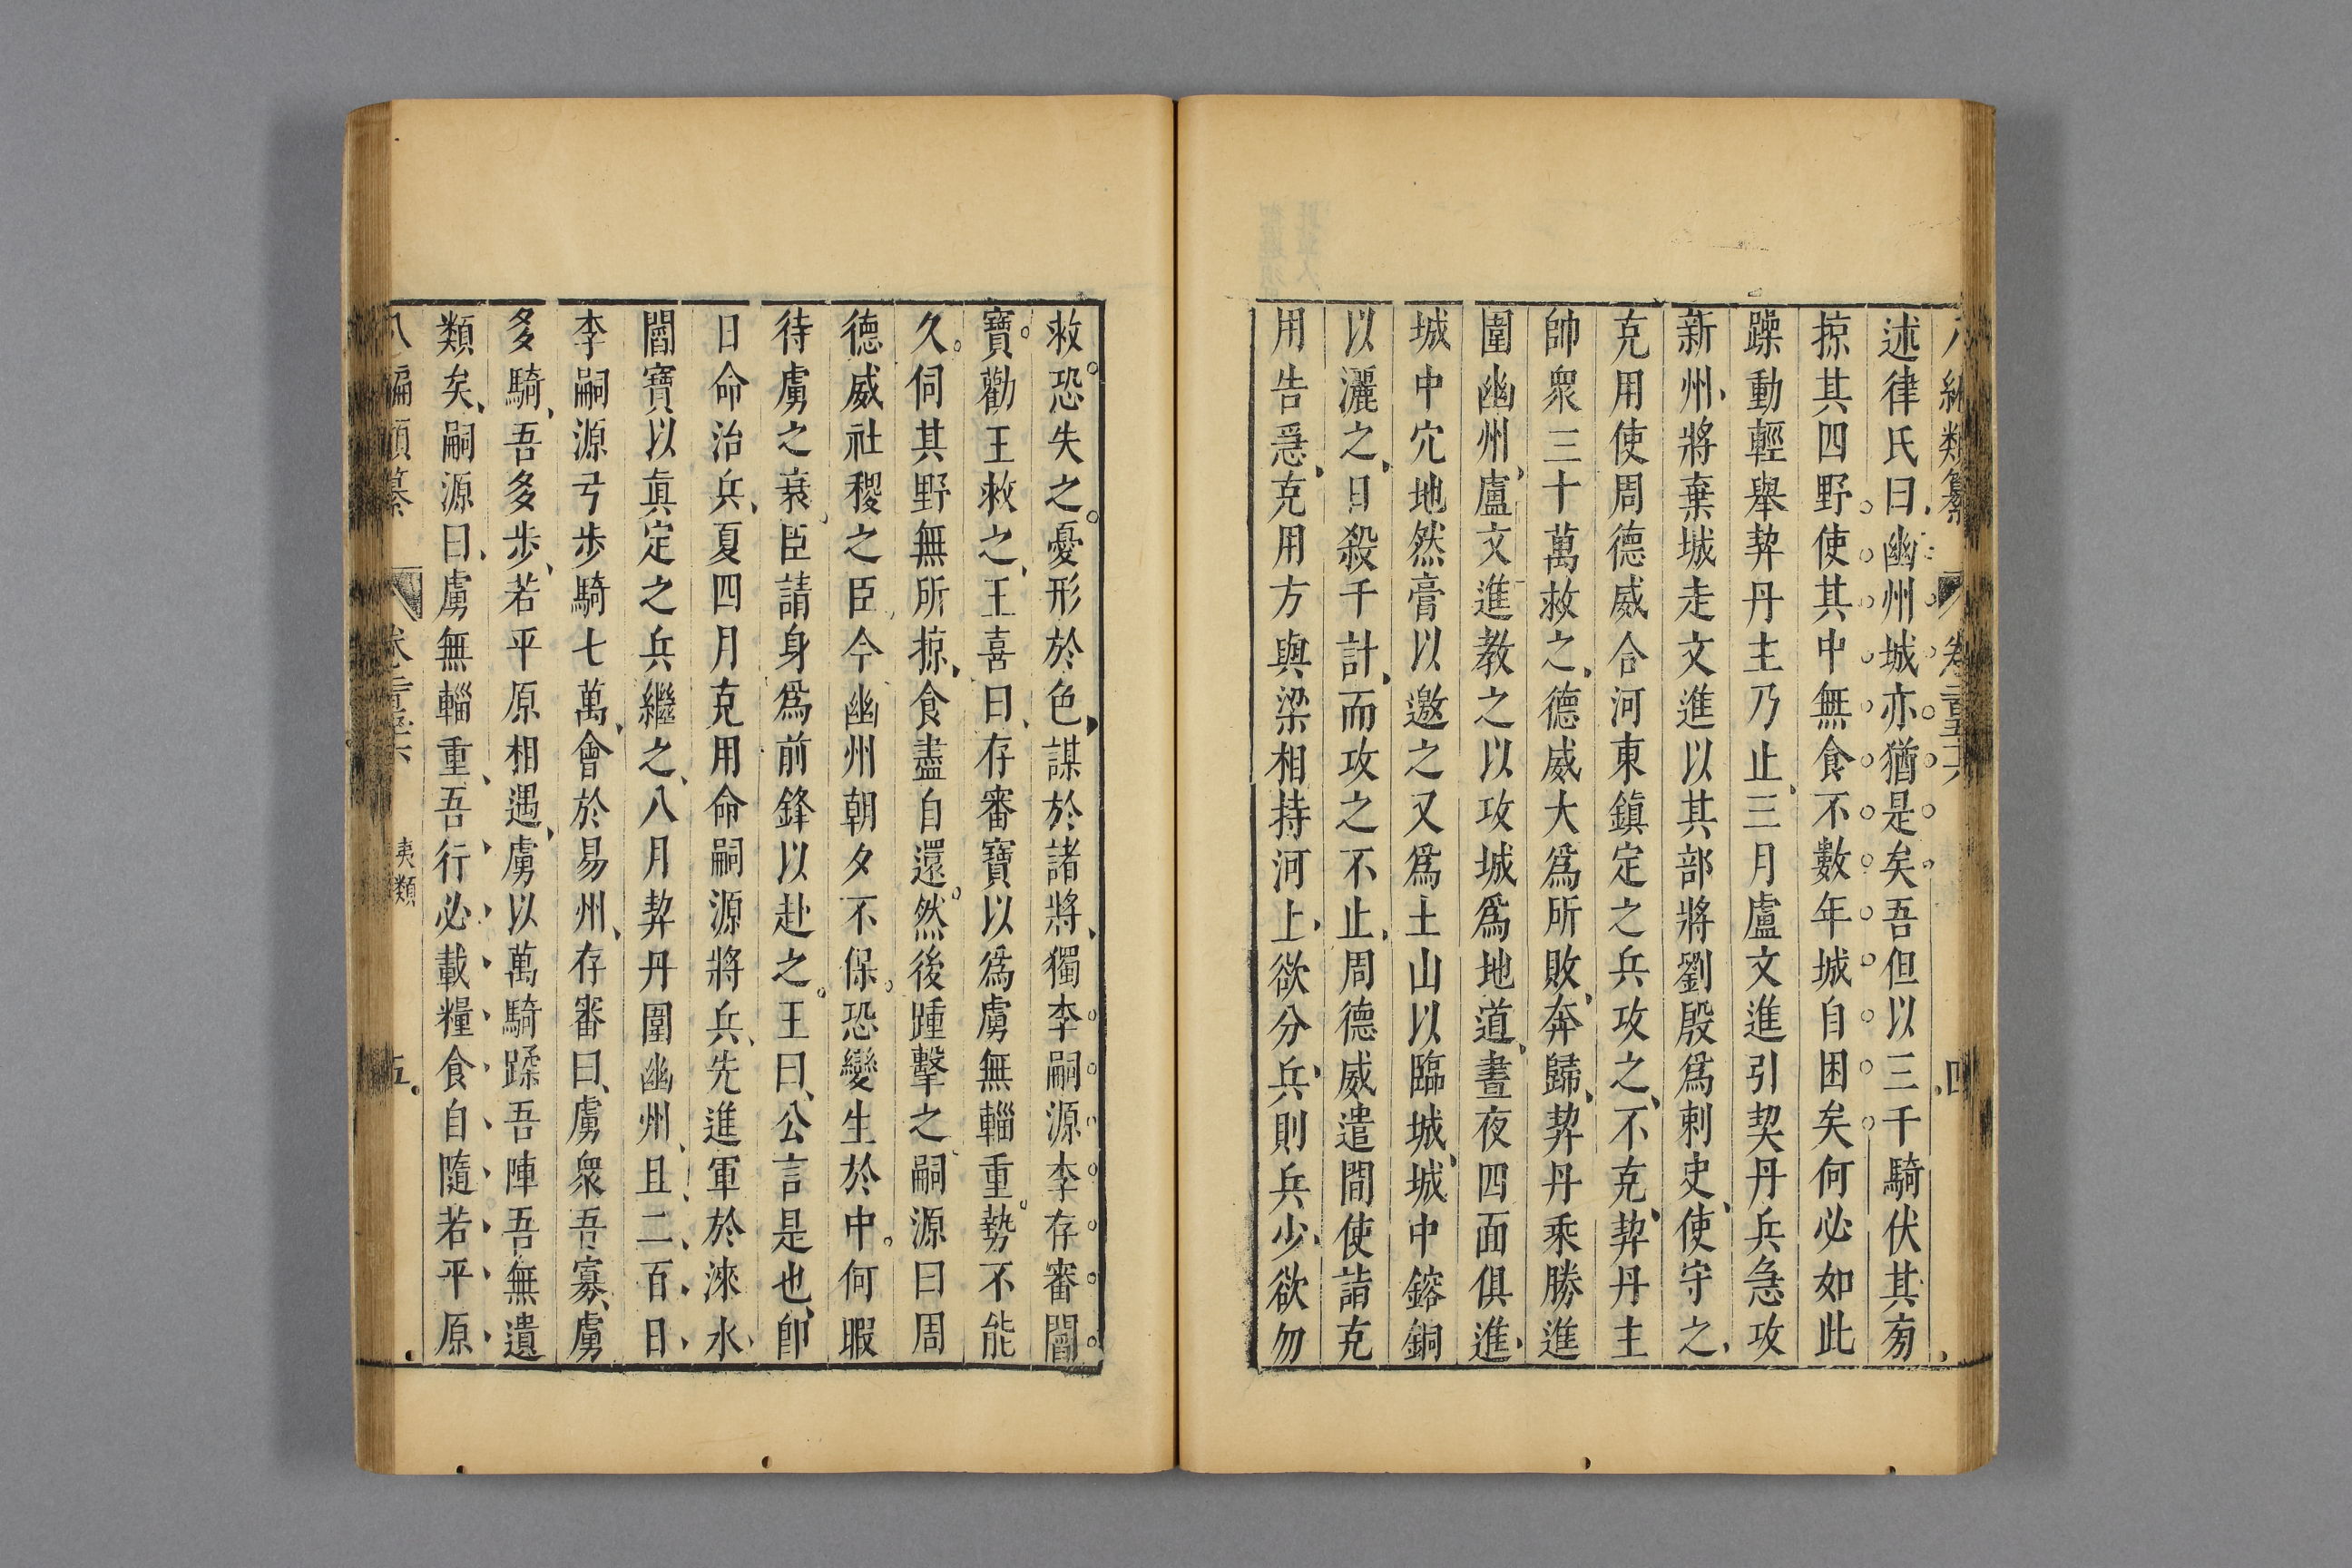 八編類纂 卷二百五十六 四
述律氏曰幽州城亦猶是矣吾但以三千騎伏其旁
掠其四野使其中無食不數年城自困矣何必如此
躁動輕舉契丹主乃止三月盧文進引契丹兵急攻
新州將棄城走文進以其部將劉殷爲刺史使守之
克用使周德威合河東鎮定之兵攻之不克契丹主
帥衆三十萬救之德威大爲所敗奔歸契丹乘勝進
圍幽州盧文進教之以攻城爲地道晝夜四面俱進
城中穴地然膏以邀之又爲土山以臨城城中鎔銅
以灑之日殺千計而攻之不止周德威遣間使詣克
用告急克用方與梁相持河上欲分兵則兵少欲勿
救恐失之憂形於色謀於諸將獨李嗣源李存審閻
寶勸王救之王喜曰存審寶以爲虜無輜重勢不能
久伺其野無所掠食盡自還然後踵擊之嗣源曰周
德威社稷之臣今幽州朝夕不保恐變生於中何暇
待虜之衰臣請身爲前鋒以赴之王曰公言是也卽
日命治兵夏四月克用命嗣源將兵先進軍於淶水
閻寶以眞定之兵繼之八月契丹圍幽州且二百日
李嗣源弓步騎七萬會於易州存審曰虜衆吾寡虜
多騎吾多步若平原相遇虜以萬騎蹂吾陣吾無遺
類矣嗣源曰虜無輜重吾行必載糧食自隨若平原
八編類纂 卷二百五十六 夷類 五